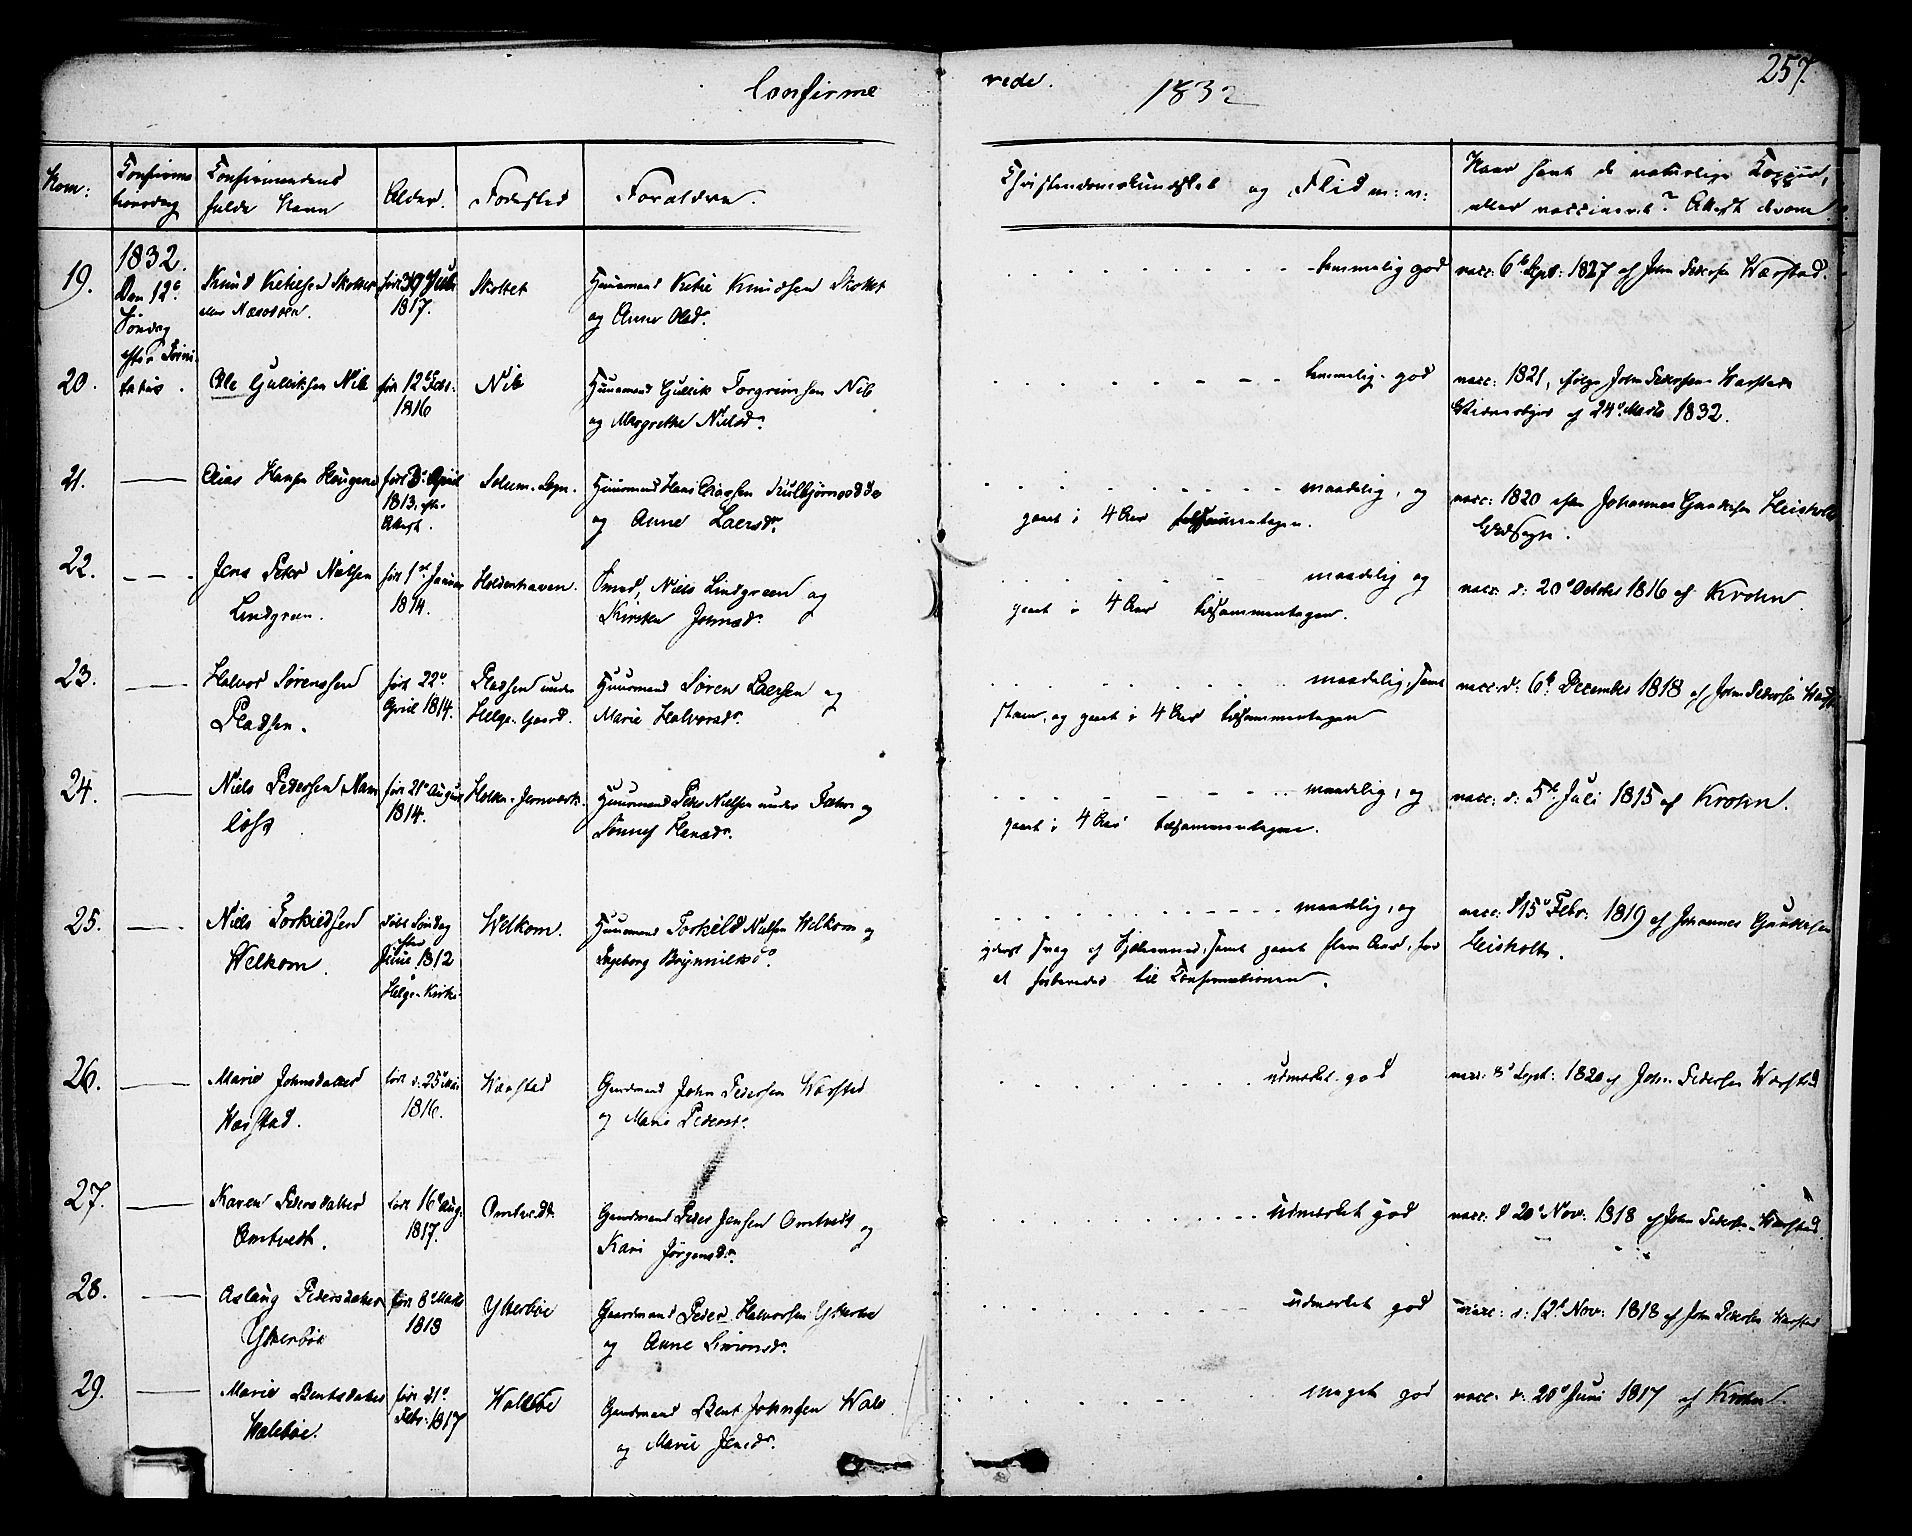 Confirme rede. 1832 257.
Num: Confirma tionsdag Confirmandens fulde Navn Alder. Fødested Forældre. Christendomskundskab og Flid m: v: Naar havt de naturlige Kopper, eller vaccineret? Attest derom
19. 1832. Den 12te Søndag efter Trinitatis. Knud Ketilsen Skottet Juli 1817. Skottet Huusmand Ketil Knudsen Skottet
og Anne Olsd:
temmelig god vacc: 6te Sept: 1827 af John Pedersen Wærstad.
20. Ole Gulliksen Nib før 12te Febr: 1816 Nib Huusmand Gullik Torgrimsen Nib
og Margrethe Nielsd:
temmelig god vacc: 1821, ifølge John Pedersen Wærstads
af 24de Marts 1832.
21. Elias Hansen Haugene født April 1813, efter Attest. Solum Sogn. Huusmand Hans
og Anne Larsd:
maadelig, og
gaaet i 4 Aar tilsammentagen.
vacc: 1820 efter Johannes Heisholt
22. Jens Peter Nielsen
Lindgreen. født 1ste Januar 1814. Holdenhaven. Smed, Niels Lindgreen og
Kirsten Johnsd:
maadelig og
gaaet i 4 Aar tilsammentagen.
vacc: d: 20de October 1816 af Krohn.
23. Halvor Sørensen
Pladsen. født 22de April 1814. Pladsen under
Helge-Gaard. Huusmand Søren Larsen og
Marie Halvorsd:
maadelig, samt
og gaaet i 4 Aar tilsammentagen
vacc: d: 6te December 1818 af John Pedersen
24. Niels Pedersen
født 21de August 1814. Holden Jernværk. Huusmand Peder Nielsen under og
maadelig, og
gaaet i 4 Aar tilsammentagen.
vacc: d: 5te Juli 1815 af Krohn.
25. Niels Torkildsen
Welkom. Døbt Søndag efter 1812
Helge-Kirke Welkom. Huusmand Torkild Nielsen Welkom og
Ingeborg
maadelig, og
yderst svag af Hukommelse, samt gaaet flere Aar, for
at forberedes til Confirmationen.
vacc: d 15de Febr: 1819 af Johannes
Heisholt.
26. Marie Johnsdatter
Wærstad. født d: 25de Mai 1816. Wærstad Gaardmand John Pedersen Wærstad
og Marie Pedersd:
udmærket god vacc: 8de Sept: 1820 af John Pedersen Wærstad
27. Karen Pedersdatter
Omtvedt. født 16de Aug: 1817. Omtvedt. Gaardmand Peder Jensen Omtvedt og
Kari Jørgensd:
udmærket god vacc: d 20de Nov: 1818 af John Pedersen Wærstad.
28. Aslaug Pedersdatter
Ytterbøe født 8de Marts 1818 Ytterbøe Gaardmand Peder Halvorsen Ytterbøe
og Anne Simonsd:
udmærket god vacc: d: 12te Nov: 1818 af John Pedersen Wærstad
29. Marie Bentsdatter
Walebøe. født 21de Febr: 1817 Walebøe Gaardmand Bent Johnsen Wale
og Marie Jensd:
meget god vacc: d: 20de Juni 1817 af Krohn.